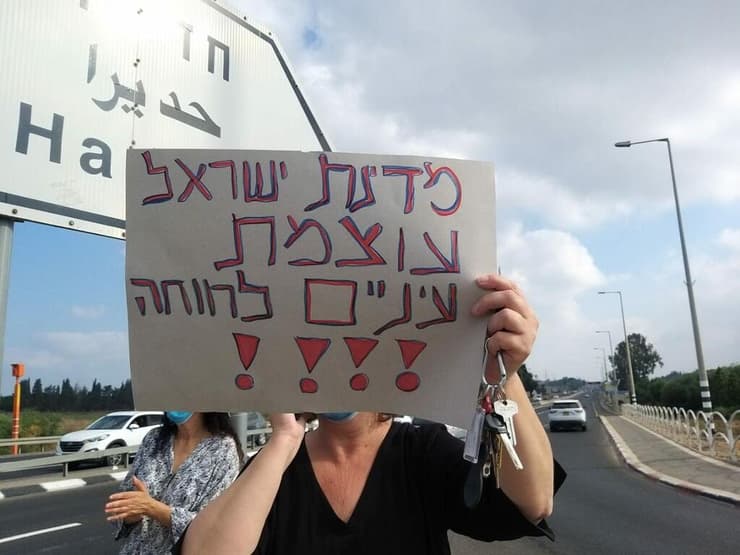 חד
حديرا
Ha
מדינת ישראל
עוצמת
עיניים לרווחה
!!!!